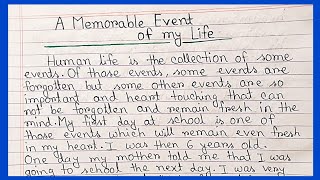 A Memorable Event
of my Life
Human life is the collection of some
events. Of those events, some events are
forgotten but some other events are so
important and heart touching that can
not be forgotten and remain fresh in the
mind. My first day at school is one of
those events which will remain even fresh
in my heart. I was then 6 years old.
One day my mother told me that I was
going to school the next day. I was very